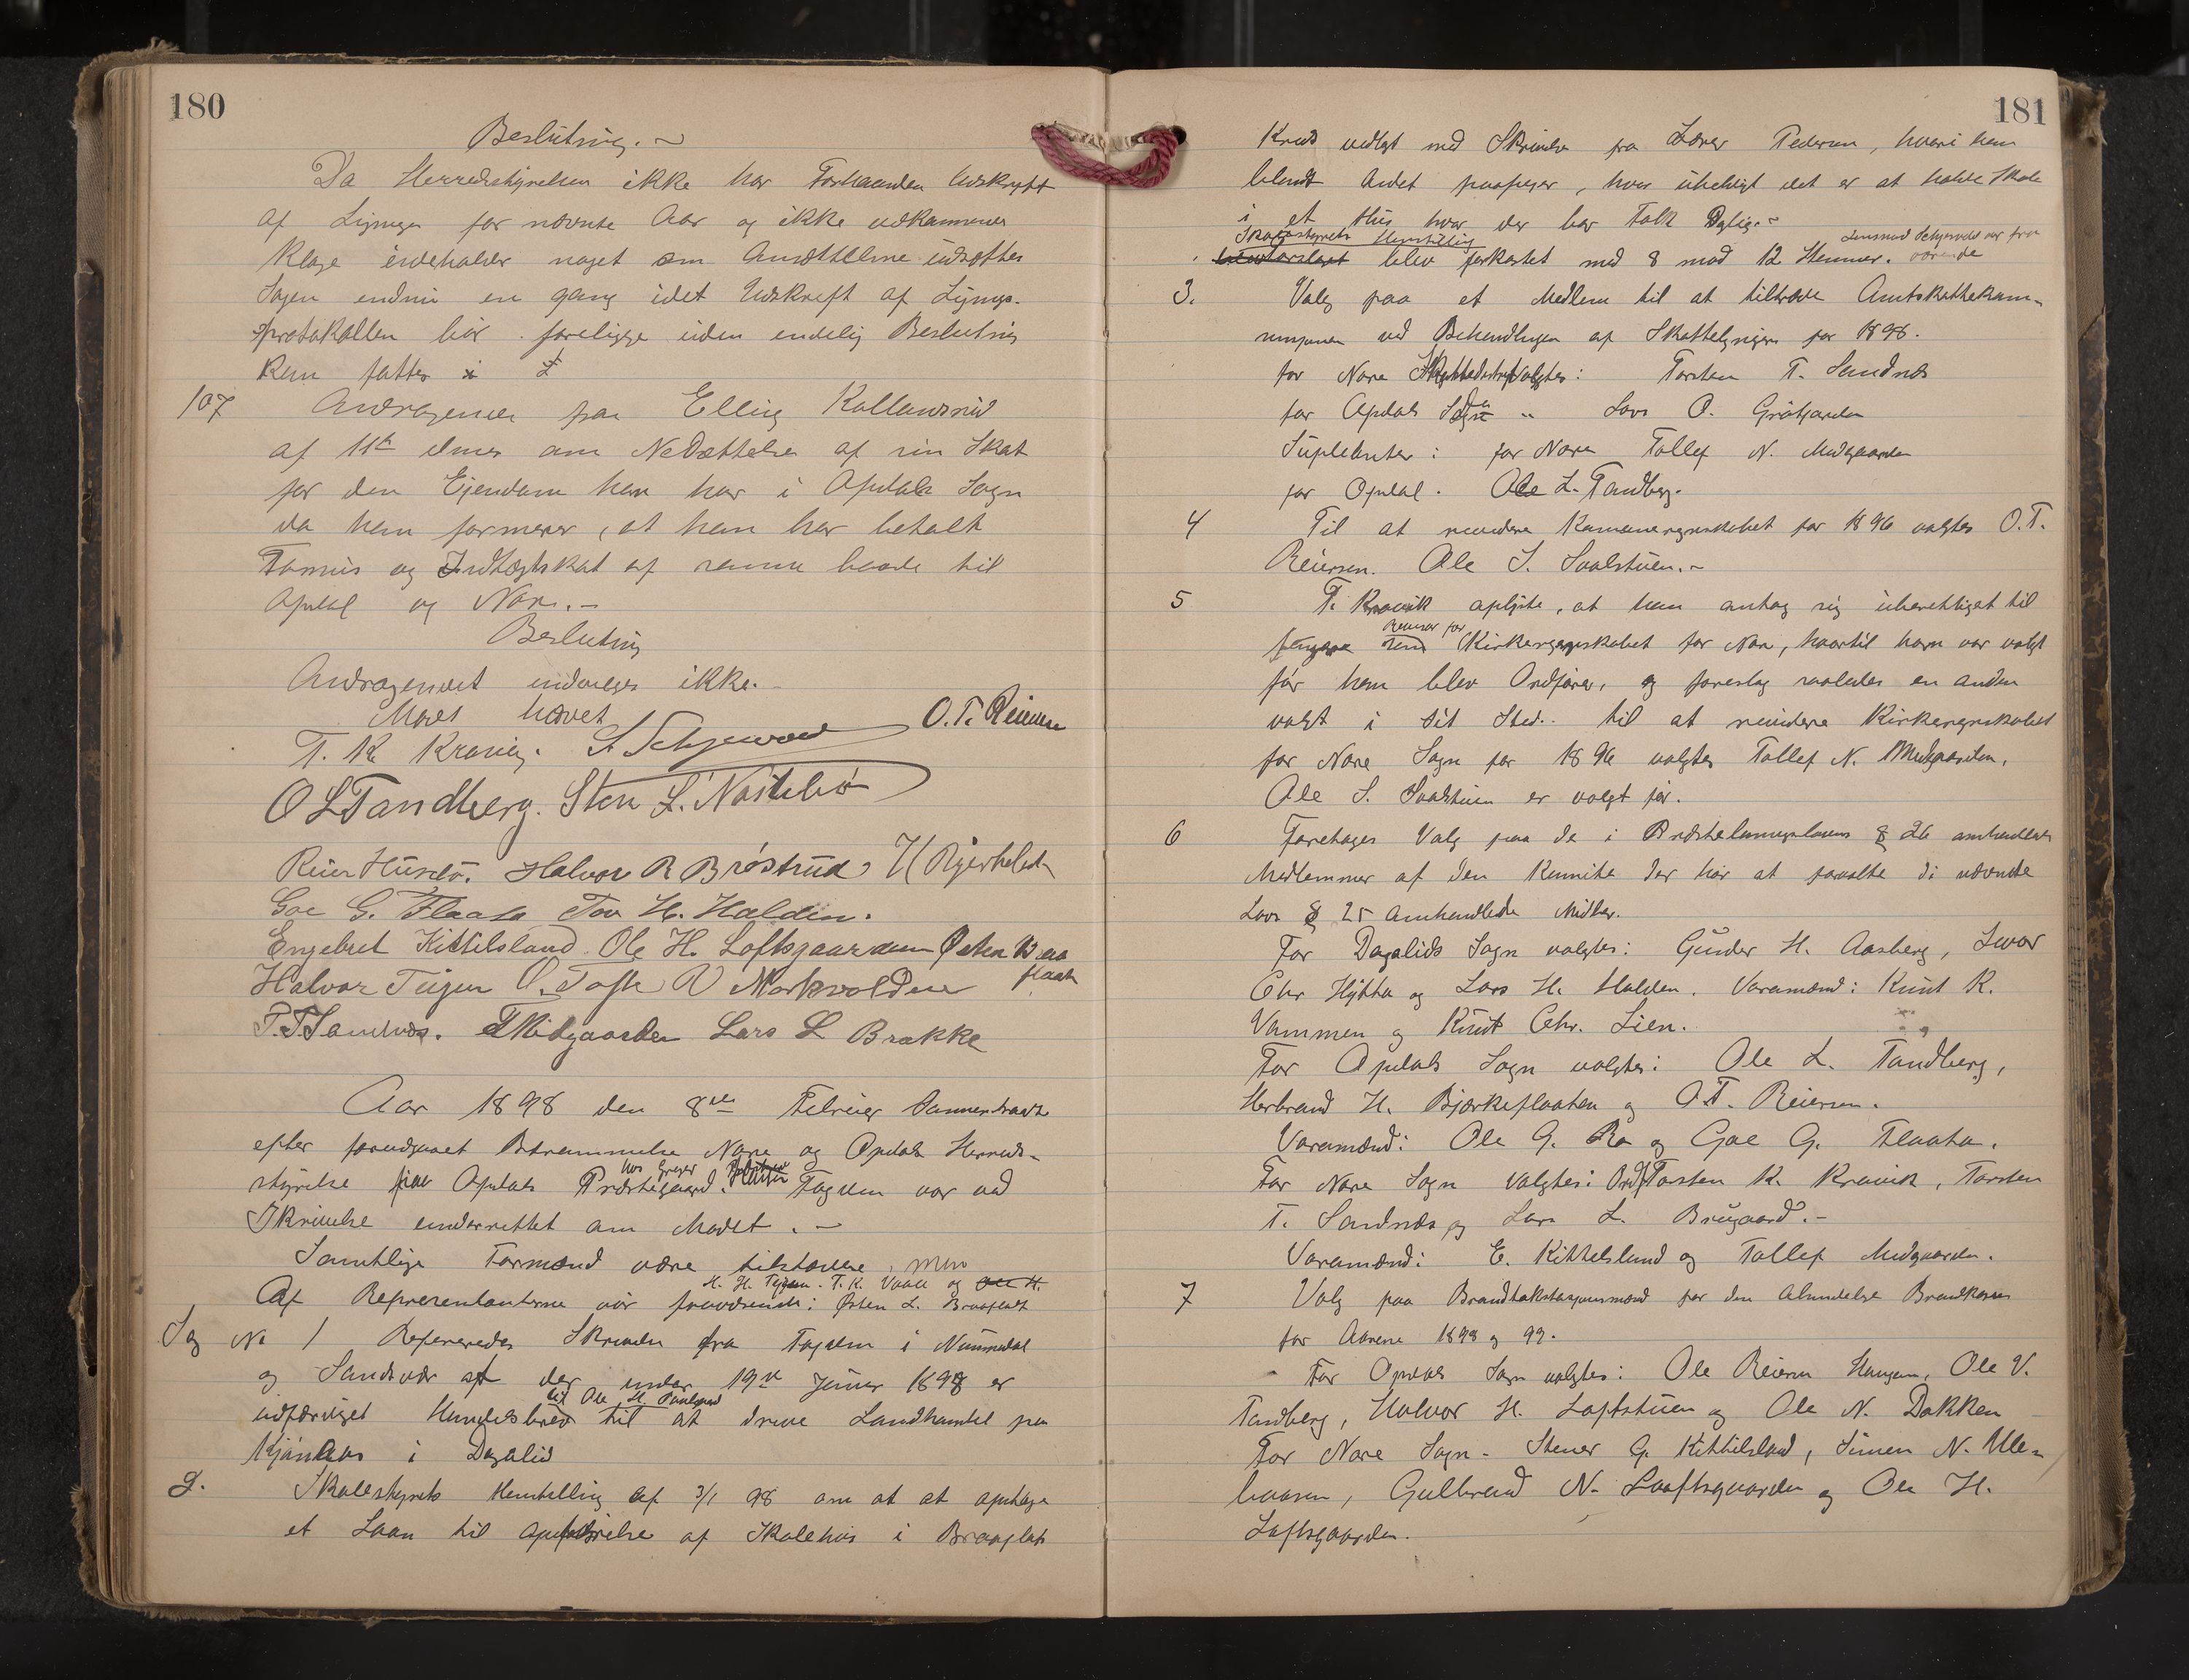 180
Beslutning. ~
Da Herredsstyrelsen ikke har Forhaanden Udskrift
af Ligningen for nævnte Aar og ikke vedkommende
Klage indeholder noget om Ansættelsene udsættes
Sagen endnu en gang idet Udskrift af Lignings-
protokollen bør foreligge inden endelig Beslutning
kan fattes
107 Andragende fra Elling Kollandsrud
af 11te dennes om Nedsættelse af sin Skat
for den Ejendom han har i Opdals Sogn
da han formener, at han har betalt
Formues og Indtægtskat af samme baade til
Opdal og Nore. -
Beslutning
Andragendet indvilges ikke. -
Mødet hævet
O. T. Reiersen
T. K. Kravig. S. Schjerven
O L Tandberg. Sten L. Nøstebø
Reier Husebø. Halvor R Brøstrud H Bjerkeflaaten
Goe G. Flaata Tov H. Halden.
Engebret Kittilsland Ole H. Loftsgaarden Østen Braa
flaata
Halvor Teigen O. Tofte O Morkvolden
T. T Sandnæs. T Midgaarden Lars L Brække
Aar 1898 den 8de Februar sammentraadte
efter foregaaet Berammelse Nore og Opdals Herreds-
hos Greger
styrelse paa Opdals Præstegaard. Fogden var ved
Skrivelse underrettet om Mødet. -
Samtlige Formænd være tilstæde men
H. H. Teigen. T. K. Vaale og Ole H.
Af Repræsentanterne var fraværende: Østen L. Braaflat
Sag No 1 Refereredes Skrivelse fra Fogden i Numedal
og Sandsvær at der under 19de Januar 1898 er
til Ole H.
udfærdiget Handelsbrev til at drive Landhandel paa
Kjønaas i Dagalid
2. Skolestyrets Henstilling af 3/1 98 om at at optage
et Laan til Opførelse af Skolehus i Braaflat
181
Kreds vedlagt med Skrivelse fra Lærer Pedersen, hvori han
blandt Andet paapeger, hvor uheldigt det er at holde Skole
i et Hus hvor der bor Folk Daglig. -
Skolestyrets Henstilling Lensmand Schjerven var fra
blev forkastet med 8 mod 12 Stemmer. værende
3. Valg paa et Medlem til at tiltræde Amtskattekom-
misjonen ved Behandlingen af Skattelignigen for 1898.
for Nore Valgtes: Torsten T. Sandnæs
for Opdals Sogn " Lars O. Grøtjorden
Supleanter: for Nore Tollef N. Midgaarden
for Opdal. Ole L. Tandberg.
4 Til at revidere Kommuneregnskabet for 1896 valgtes O. T.
Reiersen. Ole S. Svalstuen. -
5 T. Kravik oplyste, at han antog sig uberettiget til
Revisor for
fungere som Kirkeregnskabet for Nore, hvortil han var valgt
før han blev Ordfører, og foreslog saaledes en anden
valgt i sit Sted. til at revidere Kirkeregnskabet
for Nore Sogn for 1896 valgtes Tollef N. Midgaarden.
Ole S. Svalstuen er valgt før.
6 Foretages Valg paa de i Præstelønningslovens § 26 omhandlede
Medlemmer af den Komite der har at forvalte de i nævnte
Lovs § 25 omhandlede Midler.
For Dagalids Sogn valgtes: Gunder H. Aasberg, Iver
Chr Hytta og Lars H. Halden. Varamænd: Knut K.
Vammen og Knut Chr. Lien.
For Opdals Sogn valgtes: Ole L. Tandberg,
Herbrand H. Bjørkeflaaten og O. T. Reiersen.
Varamænd: Ole G. Ro og Goe G. Flaata.
For Nore Sogn Valgtes: Ordf Torsten K. Kravik, Torsten
T. Sandnæs og Lars L. Brugaard. -
Varamænd: E. Kittelsland og Tollef Midgaarden.
7 Valg paa Brandtakstasjonsmænd for den Almindelige Brandkasse
for Aarene 1898 og 99.
For Opdals Sogn valgtes: Ole Reiersen Haugen, Ole V.
Tandberg, Halvor H. Loftstuen og Ole N. Dokken
For Nore Sogn - Stener G. Kittilsland, Simen N. Ulle-
haasen, Gulbrand N. Looftsgaarden og Ole H.
Loftsgaarden.